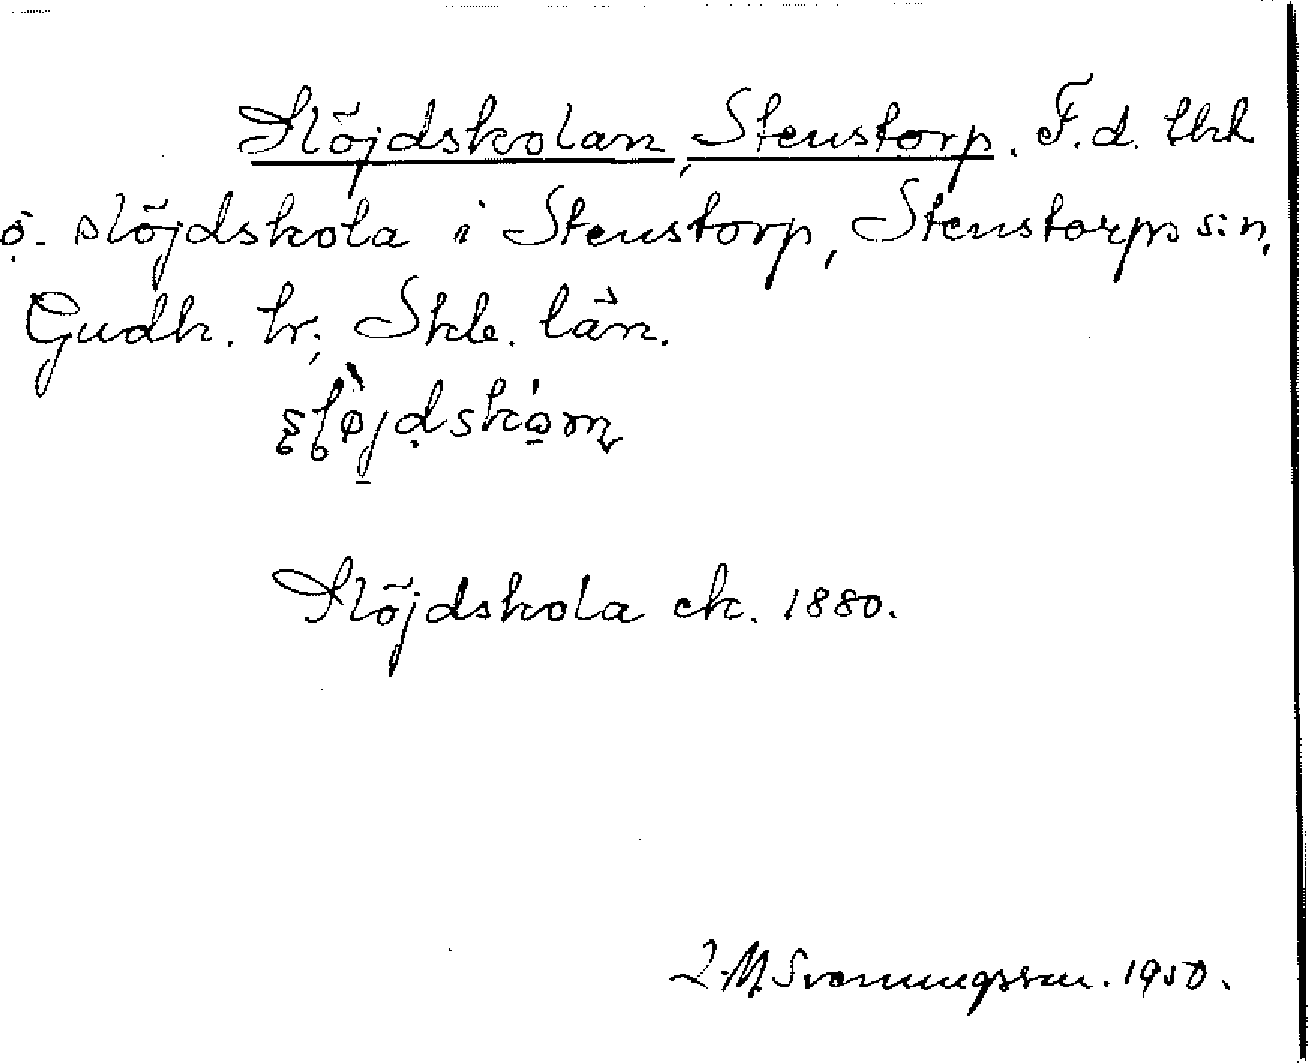 Slöjdskolan, Stenstorp. F.d. lhk
o. slöjdskola i Stenstorp, Stenstorps sn,
Gudh. hr, Skb. län.
Slöjdskola ck. 1880.
Svenningsson. 1950.